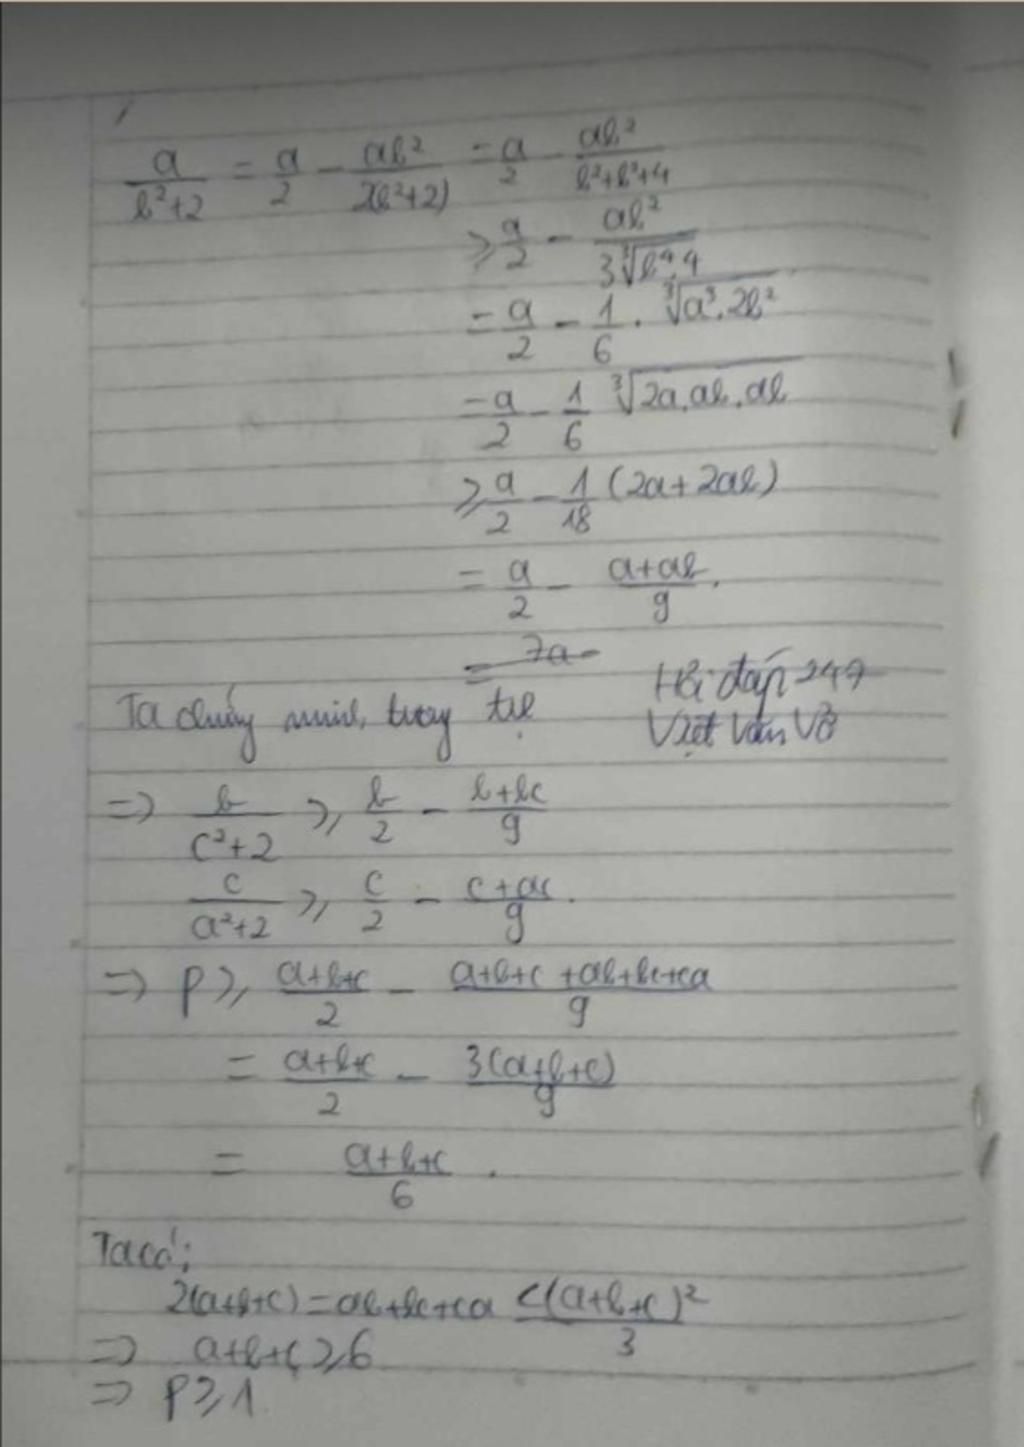 a/(b²+2) = a/2 - ab²/(2(b²+2)) = a/2 - ab²/(b²+b²+4)
≥ a/2 - ab²/(3∛(b⁴.4))
= a/2 - 1/6 . ∛(a³.2b²)
= a/2 - 1/6 ∛(2a.ab.ab)
≥ a/2 - 1/18 (2a+2ab)
= a/2 - (a+ab)/9.
= 7a
Ta chứng minh tương tự
Hỏi đáp 247
Việt Văn Võ
=> b/(c²+2) ≥ b/2 - (b+bc)/9
c/(a²+2) ≥ c/2 - (c+ac)/9.
=> P ≥ (a+b+c)/2 - (a+b+c+ab+bc+ca)/9
= (a+b+c)/2 - 3(a+b+c)/9
= (a+b+c)/6.
Ta có:
2(a+b+c) = ab+bc+ca ≤ (a+b+c)²/3
=> a+b+c ≥ 6
=> P ≥ 1